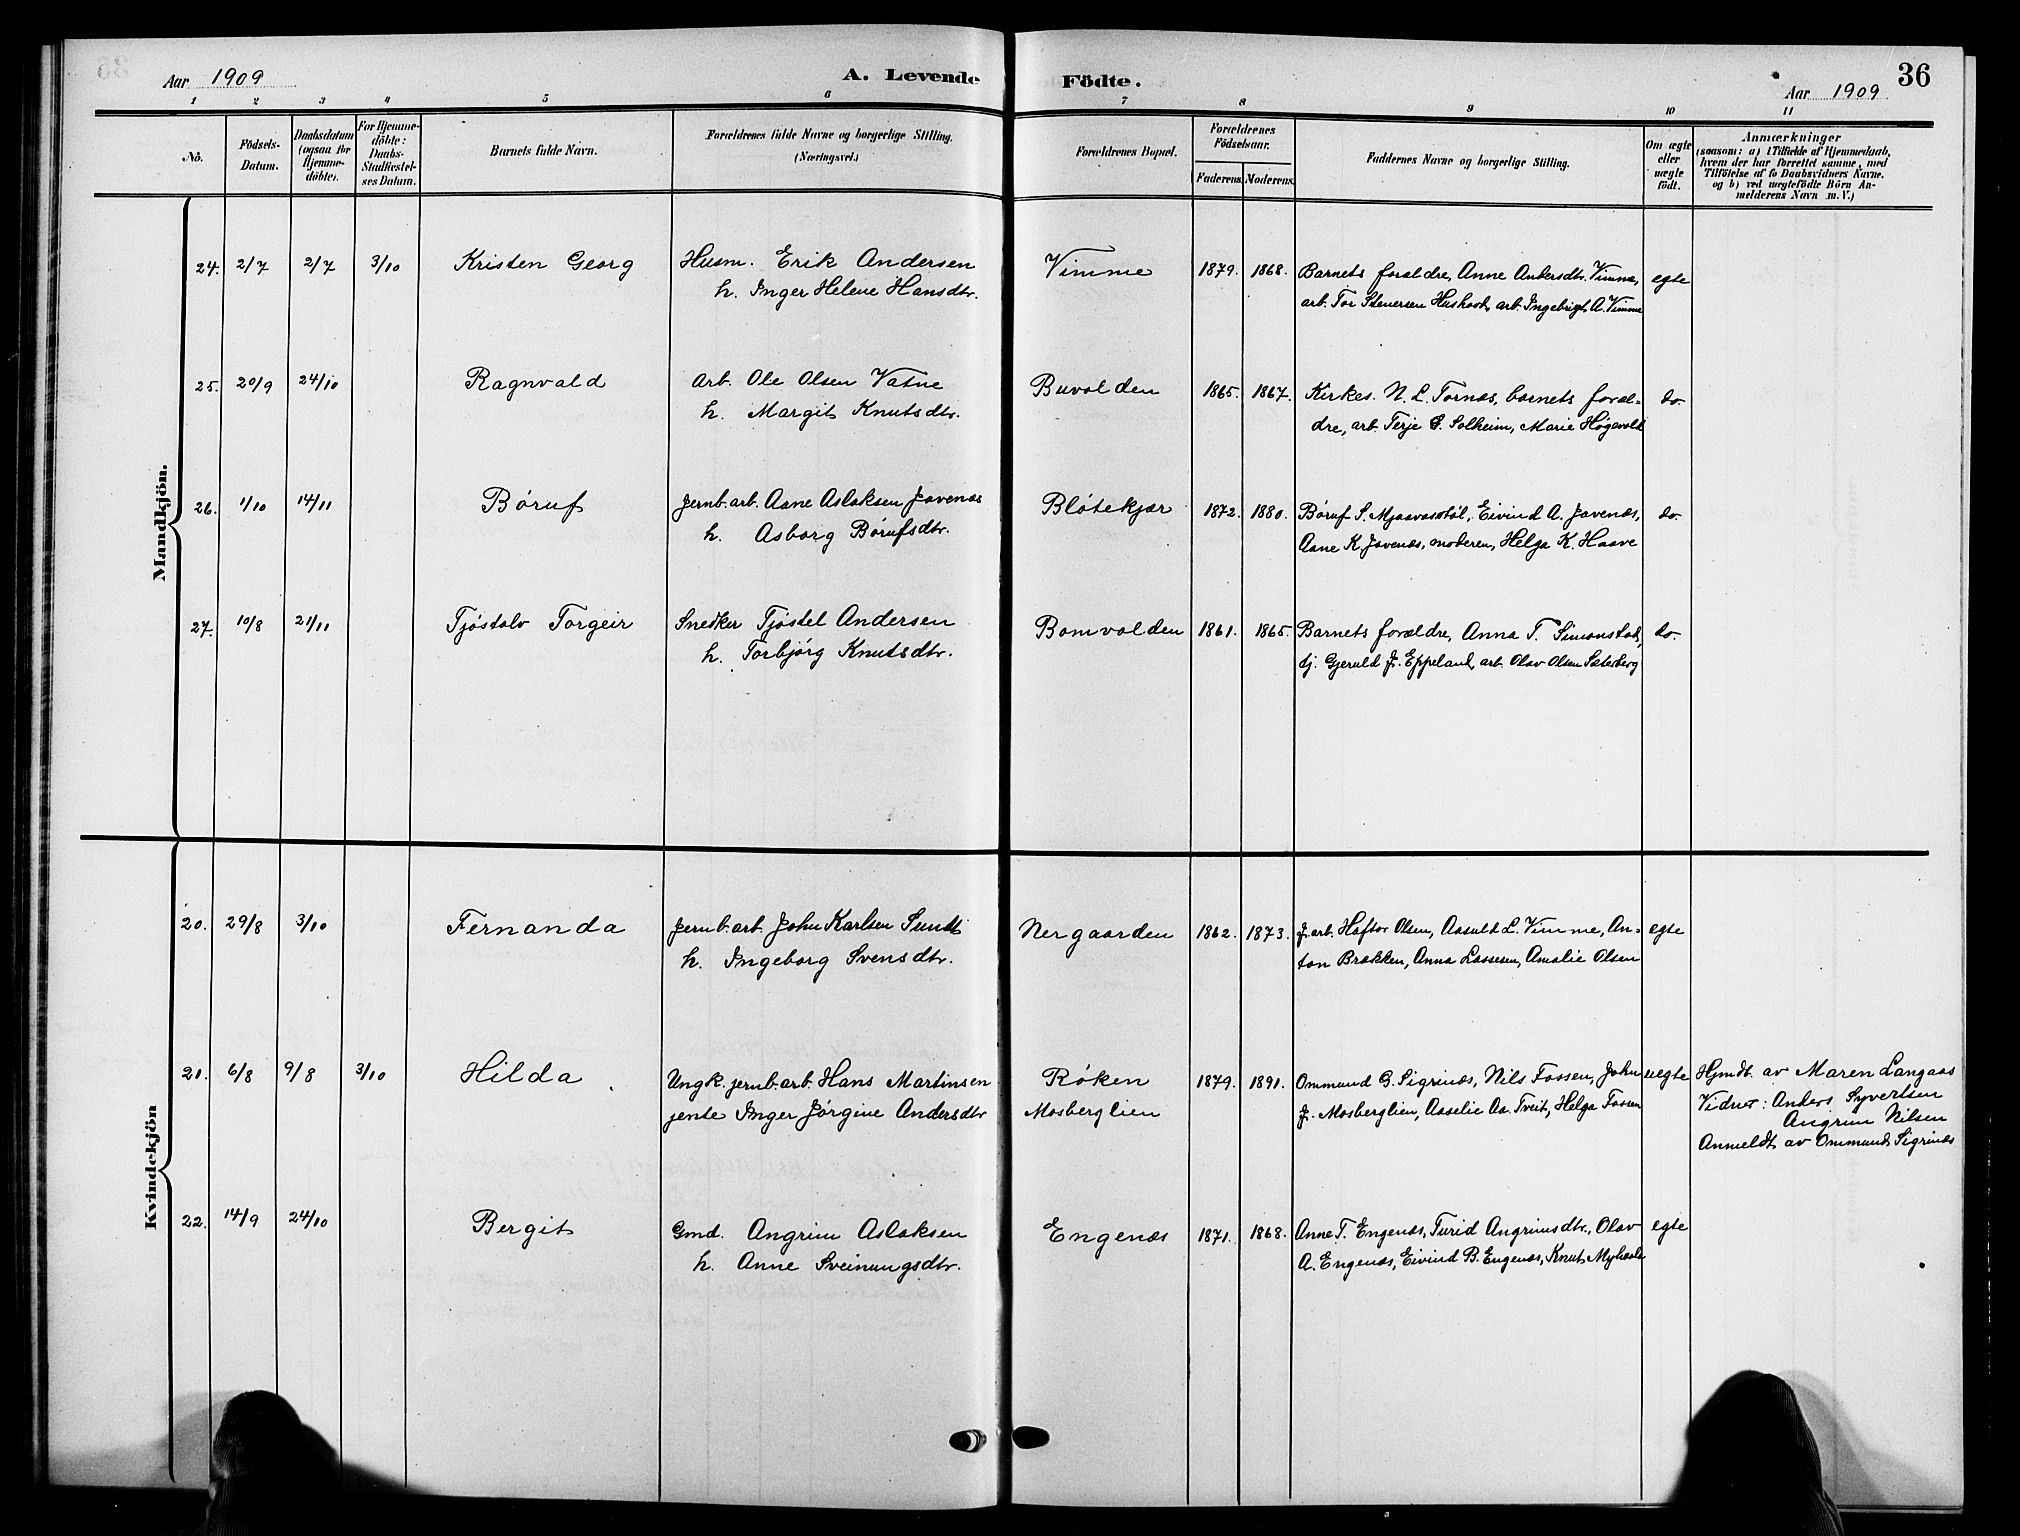 Aar 1909
A. Levende Födte.
36
Aar 1909
1 2 3 4 5 6 7 8 9 10 11
No. Födsels-Datum. Daabsdatum (ogsaa for Hjemme-döbte). For Hjemme-döbte: Daabs-Stadfæstel-ses Datum. Barnets fulde Navn. Forældrenes fulde Navne og borgerlige Stilling. (Næringsvei.) Forældrenes Bopæl. Forældrenes Födselsaar. Faderens. Moderens. Faddernes Navne og borgerlige Stilling. Om ægte eller uægte födt. Anmærkninger (saasom: a) i Tilfælde af Hjemmedaab, hvem der har forrettet samme, med Tilföielse af to Daabsvidners Navne, og b) ved uægtefödte Börn An-melderens Navn m. V.)
Mandkjön.
24. 2/7 2/7 3/10 Kristen Georg Husm. Erik Andersen Vimme 1879. 1868. Barnets forældre, Anne Andersdtr. Vimme, egte
h. Inger Helene Hansdtr. arb. Tor Stenersen Hushovd, arb. Ingebrigt A. Vimme
25. 20/9 24/10 Ragnvald Arb. Ole Olsen Vatne Buvolden 1865. 1867. Kirkes. N. L. Tornæs, barnets foræl- do.
h. Margit Knutsdtr. dre, arb. Terje G. Solheim, Marie Høgevold
26. 1/10 14/11 Børuf Jernb.arb. Aane Aslaksen Jovenæs Bløtekjær 1872. 1880. Børuf S. Mjaavasstøl, Eivind A. Jovenæs, do.
h. Asborg Børufsdtr. Aane K. Jovenæs, moderen, Helga K. Haave
27. 10/8 21/11 Tjøstolv Torgeir Snedker Tjøstel Andersen Bomvolden 1861. 1865. Barnets forældre, Anna T. Simonstad, do.
h. Torbjørg Knutsdtr. tj. Gjeruld J. Eppeland, arb. Olav Olsen Sæterberg
Kvindekjön
20. 29/8 3/10 Fernanda Jernb.arb. John Karlsen Sundt Nergaarden 1862. 1873. J.arb. Haftor Olsen, Aasuld L. Vimme, An- egte
h. Ingeborg Svensdtr. ton Brækken, Anna Lassesen, Amalie Olsen
21. 6/8 9/8 3/10 Hilda Ungk. jernb.arb. Hans Martinsen Røken 1879. 1891. Ommund G. Sigrinæs, Nils Fossen, John uegte Hjmdt. av Maren Langaas
jente Inger Jørgine Andersdtr Mosberglien J. Mosberglien, Aaselie As. Tveit, Helga Fossen Vidner: Anders Syvertsen
Angrim Nilsen
Anmeldt av Ommund Sigrinæs
22. 14/9 24/10 Bergit Gmd. Angrim Aslaksen Engenæs 1871. 1868. Anne T. Engenæs, Turid Angrimsdtr., Olav egte
h. Anne Sveinungsdtr. A. Engenæs, Eivind B. Engenæs, Knut